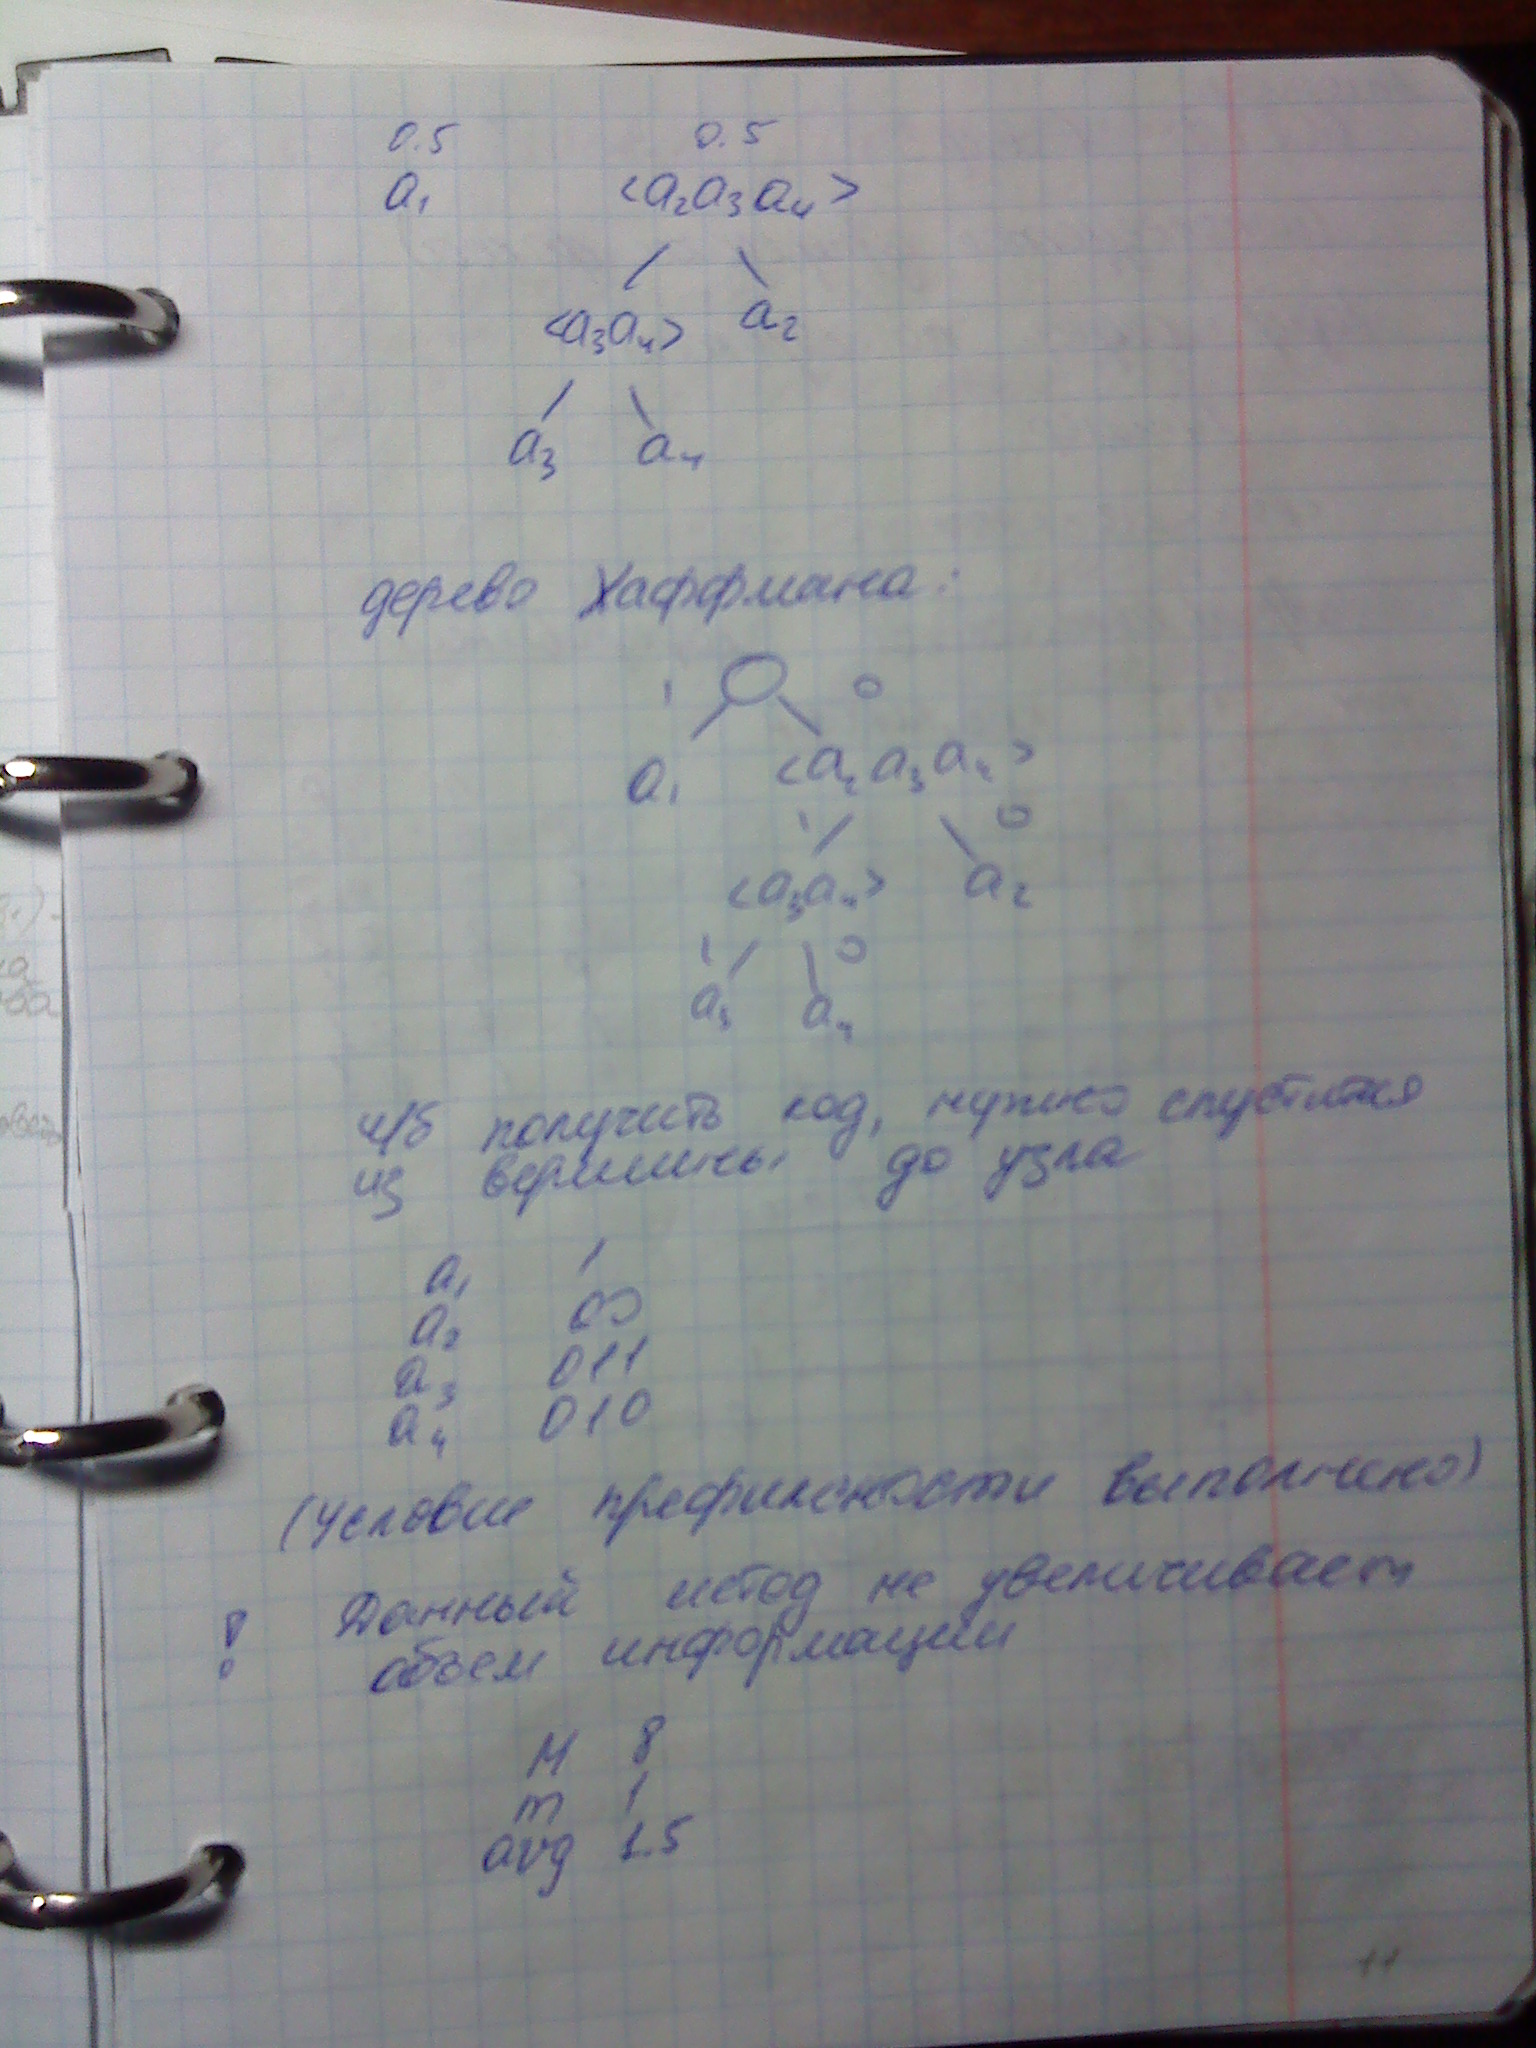 0.5 0.5
a₁ <a₂a₃a₄>
<a₃a₄> a₂
a₃ a₄
дерево Хаффмана:
1 0
a₁ <a₂a₃a₄>
1 0
<a₃a₄> a₂
1 0
a₃ a₄
ч/б получить код, нужно спустится
из вершины до узла
a₁ 1
a₂ 00
a₃ 011
a₄ 010
(условие префиксности выполнено)
! Данный метод не увеличивает
объем информации
M 8
m 1
avg 1.5
11